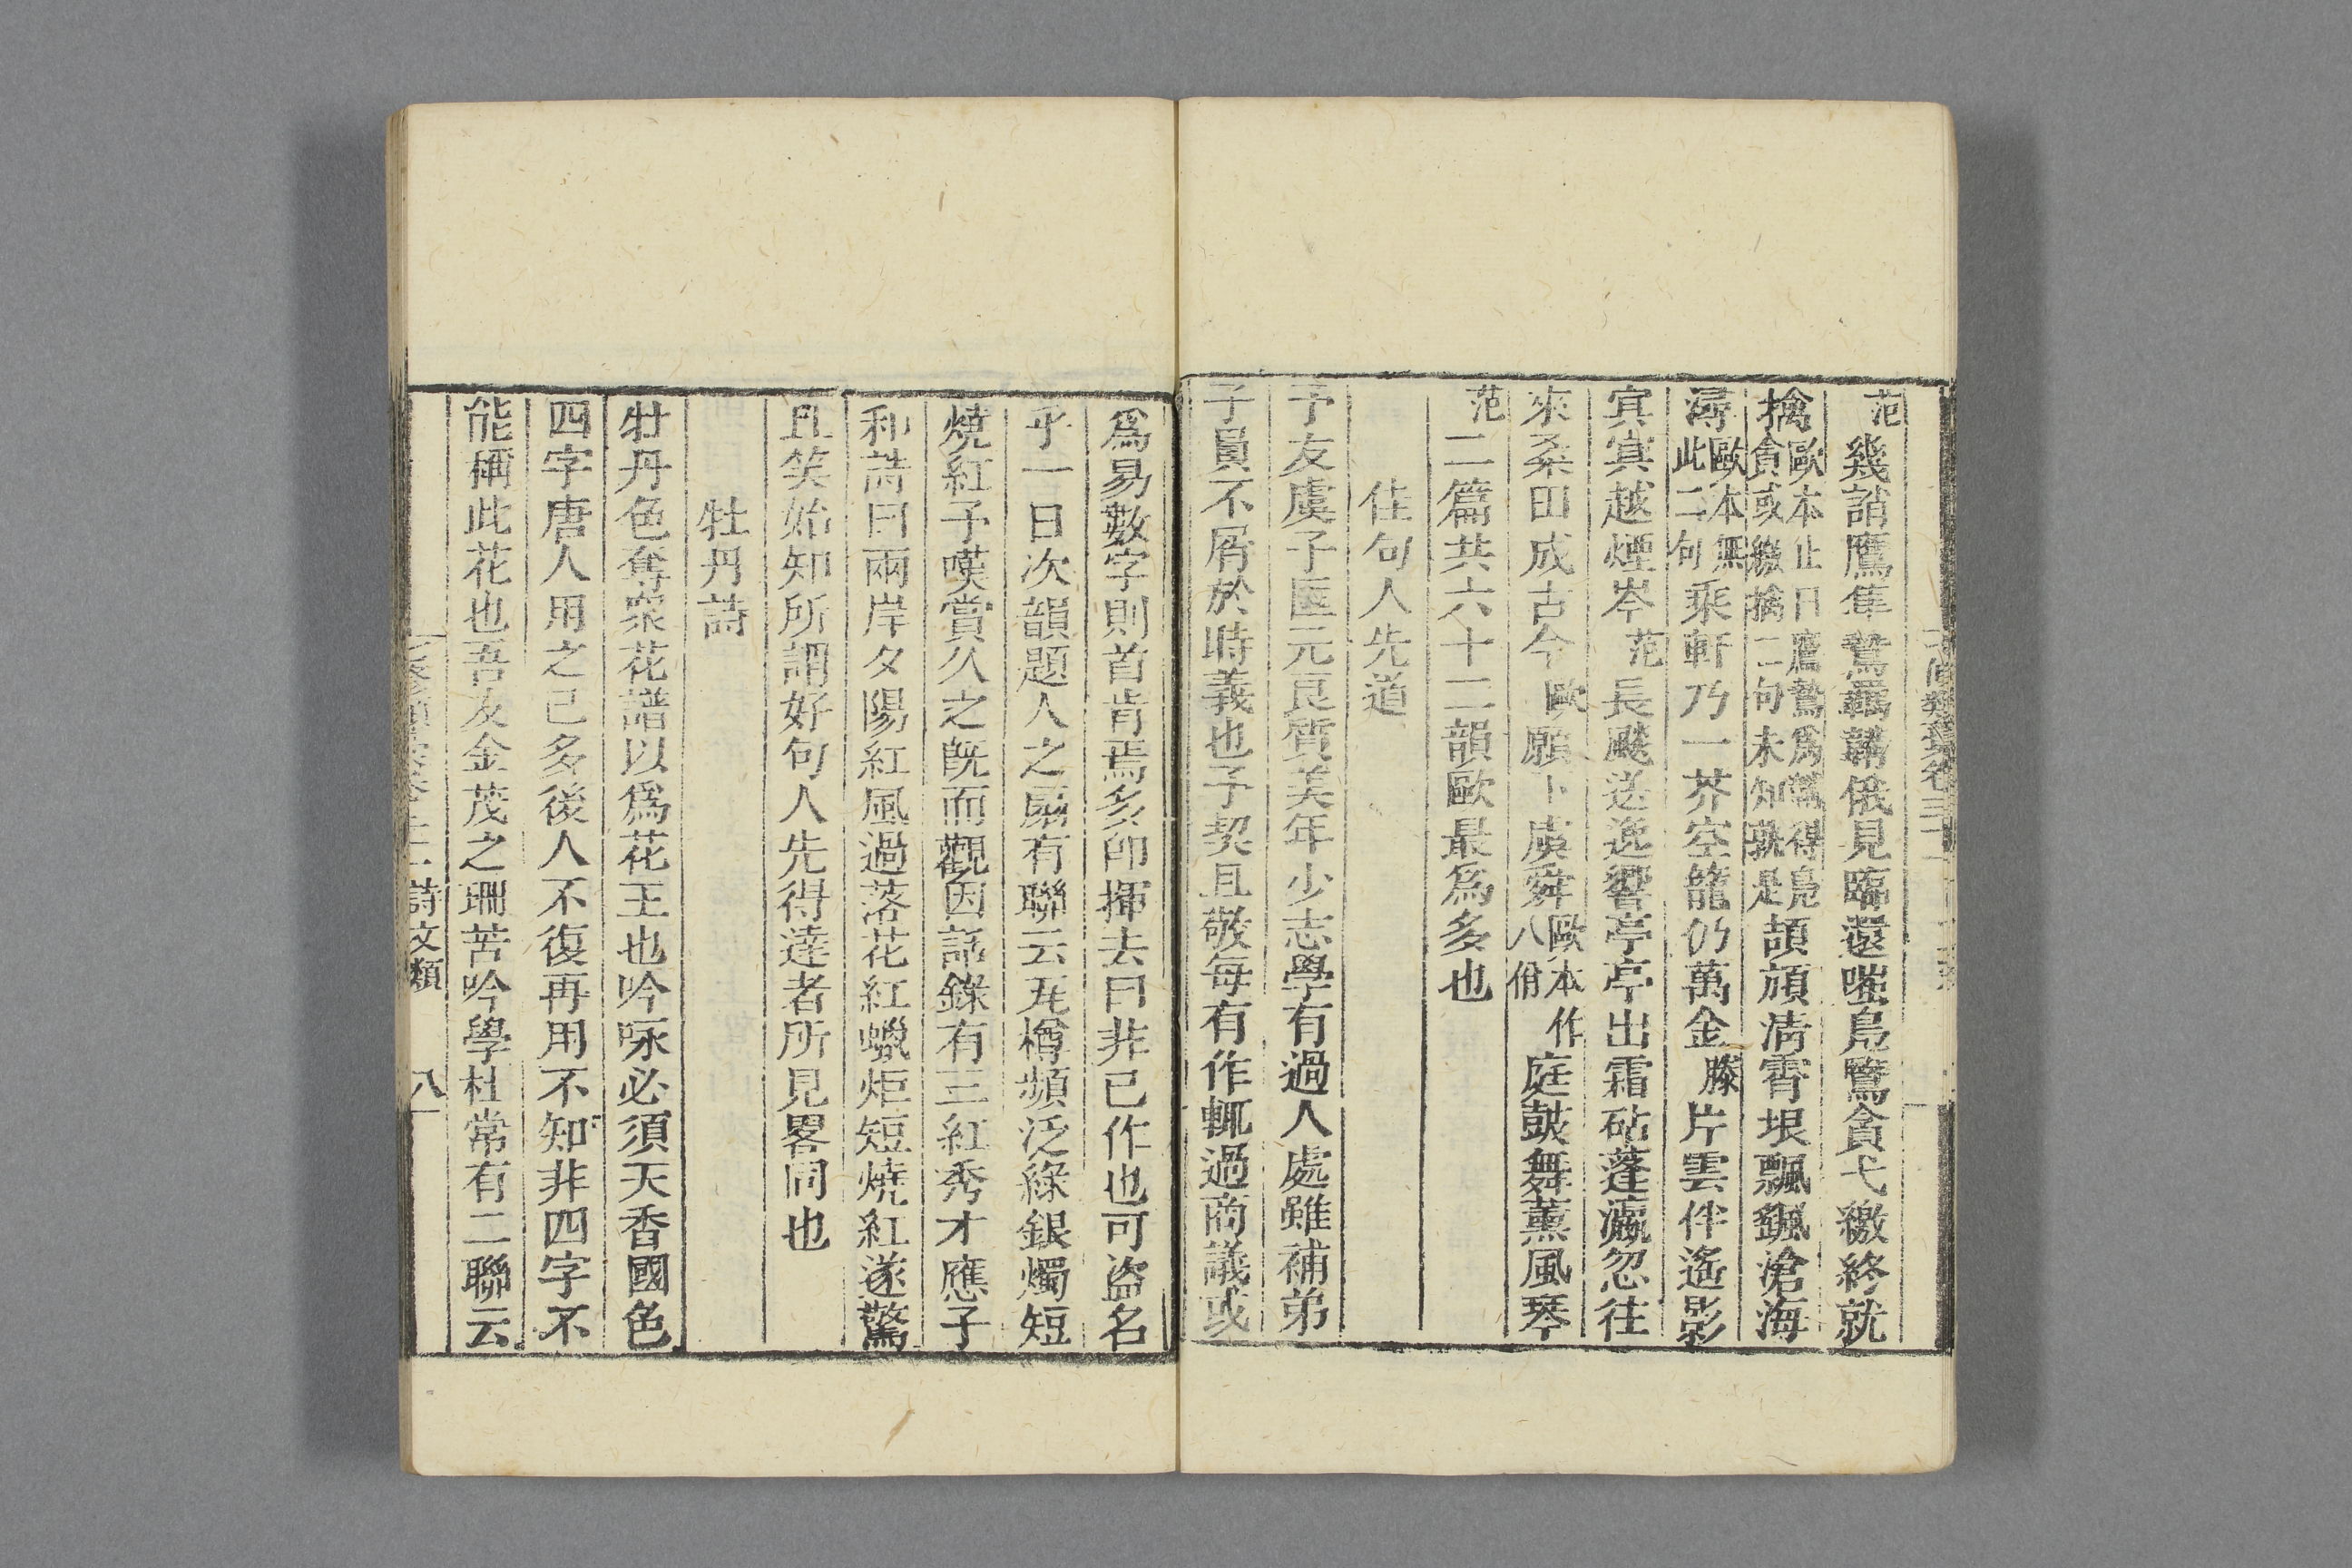 范幾誚鷹隼鷙羈韝俄見臨還嗤鳧鷖貪弋繳終就
擒歐本止曰鷹鷙為羈得鳧貪或繳擒二句未知孰是頡頏清霄垠飄颻滄海
潯歐本無此二句乘軒乃一芥空籠仍萬金滕片雲伴遙影
寞寞越煙岑范長飈送逸響亭亭出霜砧蓬瀛忽往
來桑田成古今歐願卜虞舜歐本作八佾庭鼓舞薰風琴
范二篇共六十二韻歐最爲多也
佳句人先道
予友虞子匡元良質美年少志學有過人處雖補弟
子員不屑於時義也予契且敬每有作輒過商議或
爲易數字則首肯焉多卽揮去曰非已作也可盜名
乎一日次韻題人之扇有聯云瓦樽頻泛綠銀燭短
燒紅予嘆賞久之旣而觀因話錄有三紅秀才應子
和詩曰兩岸夕陽紅風過落花紅蠟炬短燒紅遂驚
且笑始知所謂好句人先得達者所見畧同也
牡丹詩
牡丹色奪衆花譜以爲花王也吟咏必須天香國色
四字唐人用之已多後人不復再用不知非四字不
能稱此花也吾友金茂之珊苦吟學杜常有二聯云
詩文類
八